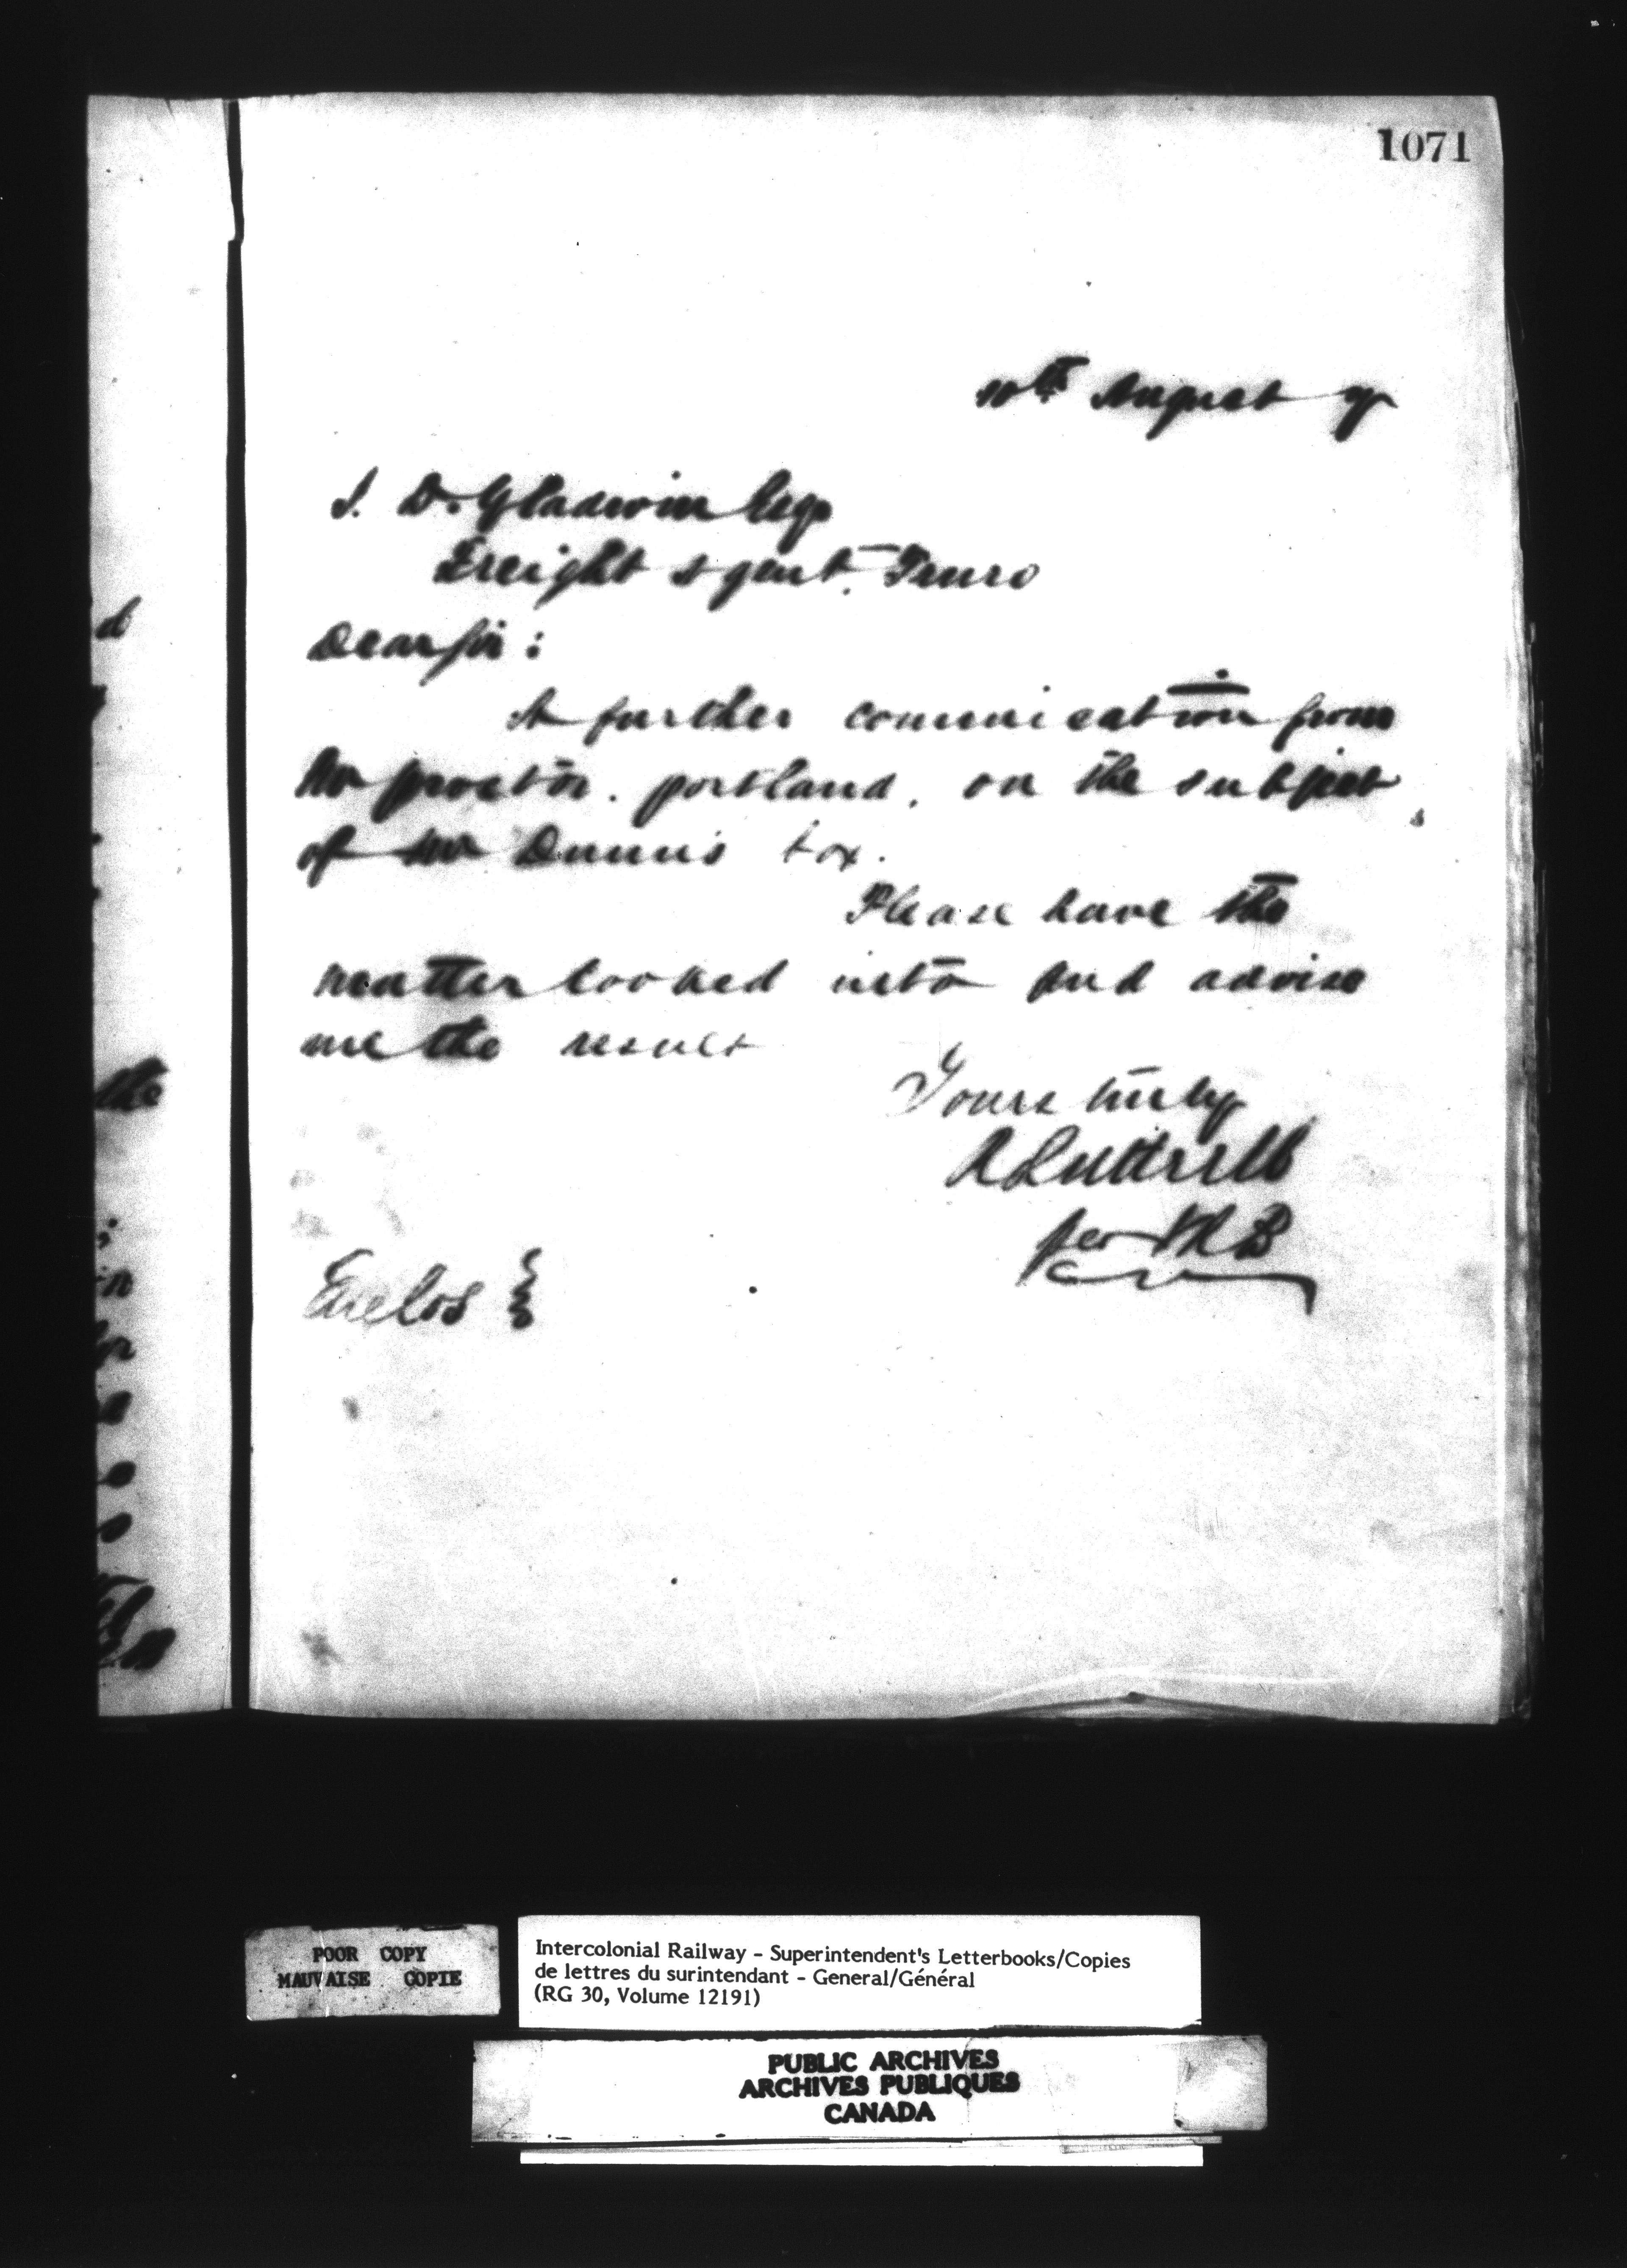 1071
10th August
S. D. Gladwin Esqr
Freight Agent. Truro
Dear Sir:
A further communication from
Mr Proctor. Portland, on the subject
of Mr Dunn's box.
Please have the
matter looked into and advise
me the result
Yours truly
A Luttrell
per
Enclos
the
POOR COPY
MAUVAISE COPIE
Intercolonial Railway - Superintendent's Letterbooks/Copies
de lettres du surintendant - General/Général
(RG 30, Volume 12191)
PUBLIC ARCHIVES
ARCHIVES PUBLIQUES
CANADA